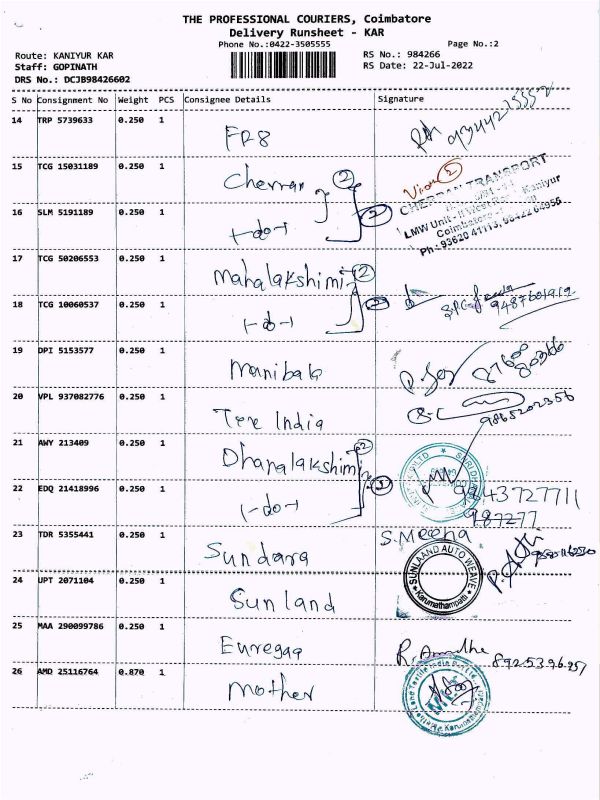 THE PROFESSIONAL COURIERS, Coimbatore
Delivery Runsheet - KAR
Phone No.:0422-3505555 Page No.:2
Route: KANIYUR KAR RS No.: 984266
Staff: GOPINATH RS Date: 22-Jul-2022
DRS No.: DCJB98426602
S No Consignment No Weight PCS Consignee Details Signature
14 TRP 5739633 0.250 1 FR8
15 TCG 15031189 0.250 1 Cherran 2
CHERRAN TRANSPORT
LMW Unit - II West Kaniyur
Coimbatore
Ph : 93620 41113, 98422 04956
16 SLM 5191189 0.250 1 -do- 2
17 TCG 50206553 0.250 1 Mahalakshimi 2
18 TCG 10060537 0.250 1 -do- 2
9487601912
19 DPI 5153577 0.250 1 Manibala
20 VPL 937082776 0.250 1 Tere India 9865202356
21 AWY 213409 0.250 1 Dhanalakshimi 2
22 EDQ 21418996 0.250 1 -do- 9943727711
987277
23 TDR 5355441 0.250 1 Sundara S. Meena
SUNLAND AUTO WEAVE
Karumathampatti
24 UPT 2071104 0.250 1 Sun land
25 MAA 290099786 0.250 1 Euregaa
26 AMD 25116764 0.870 1 Mother